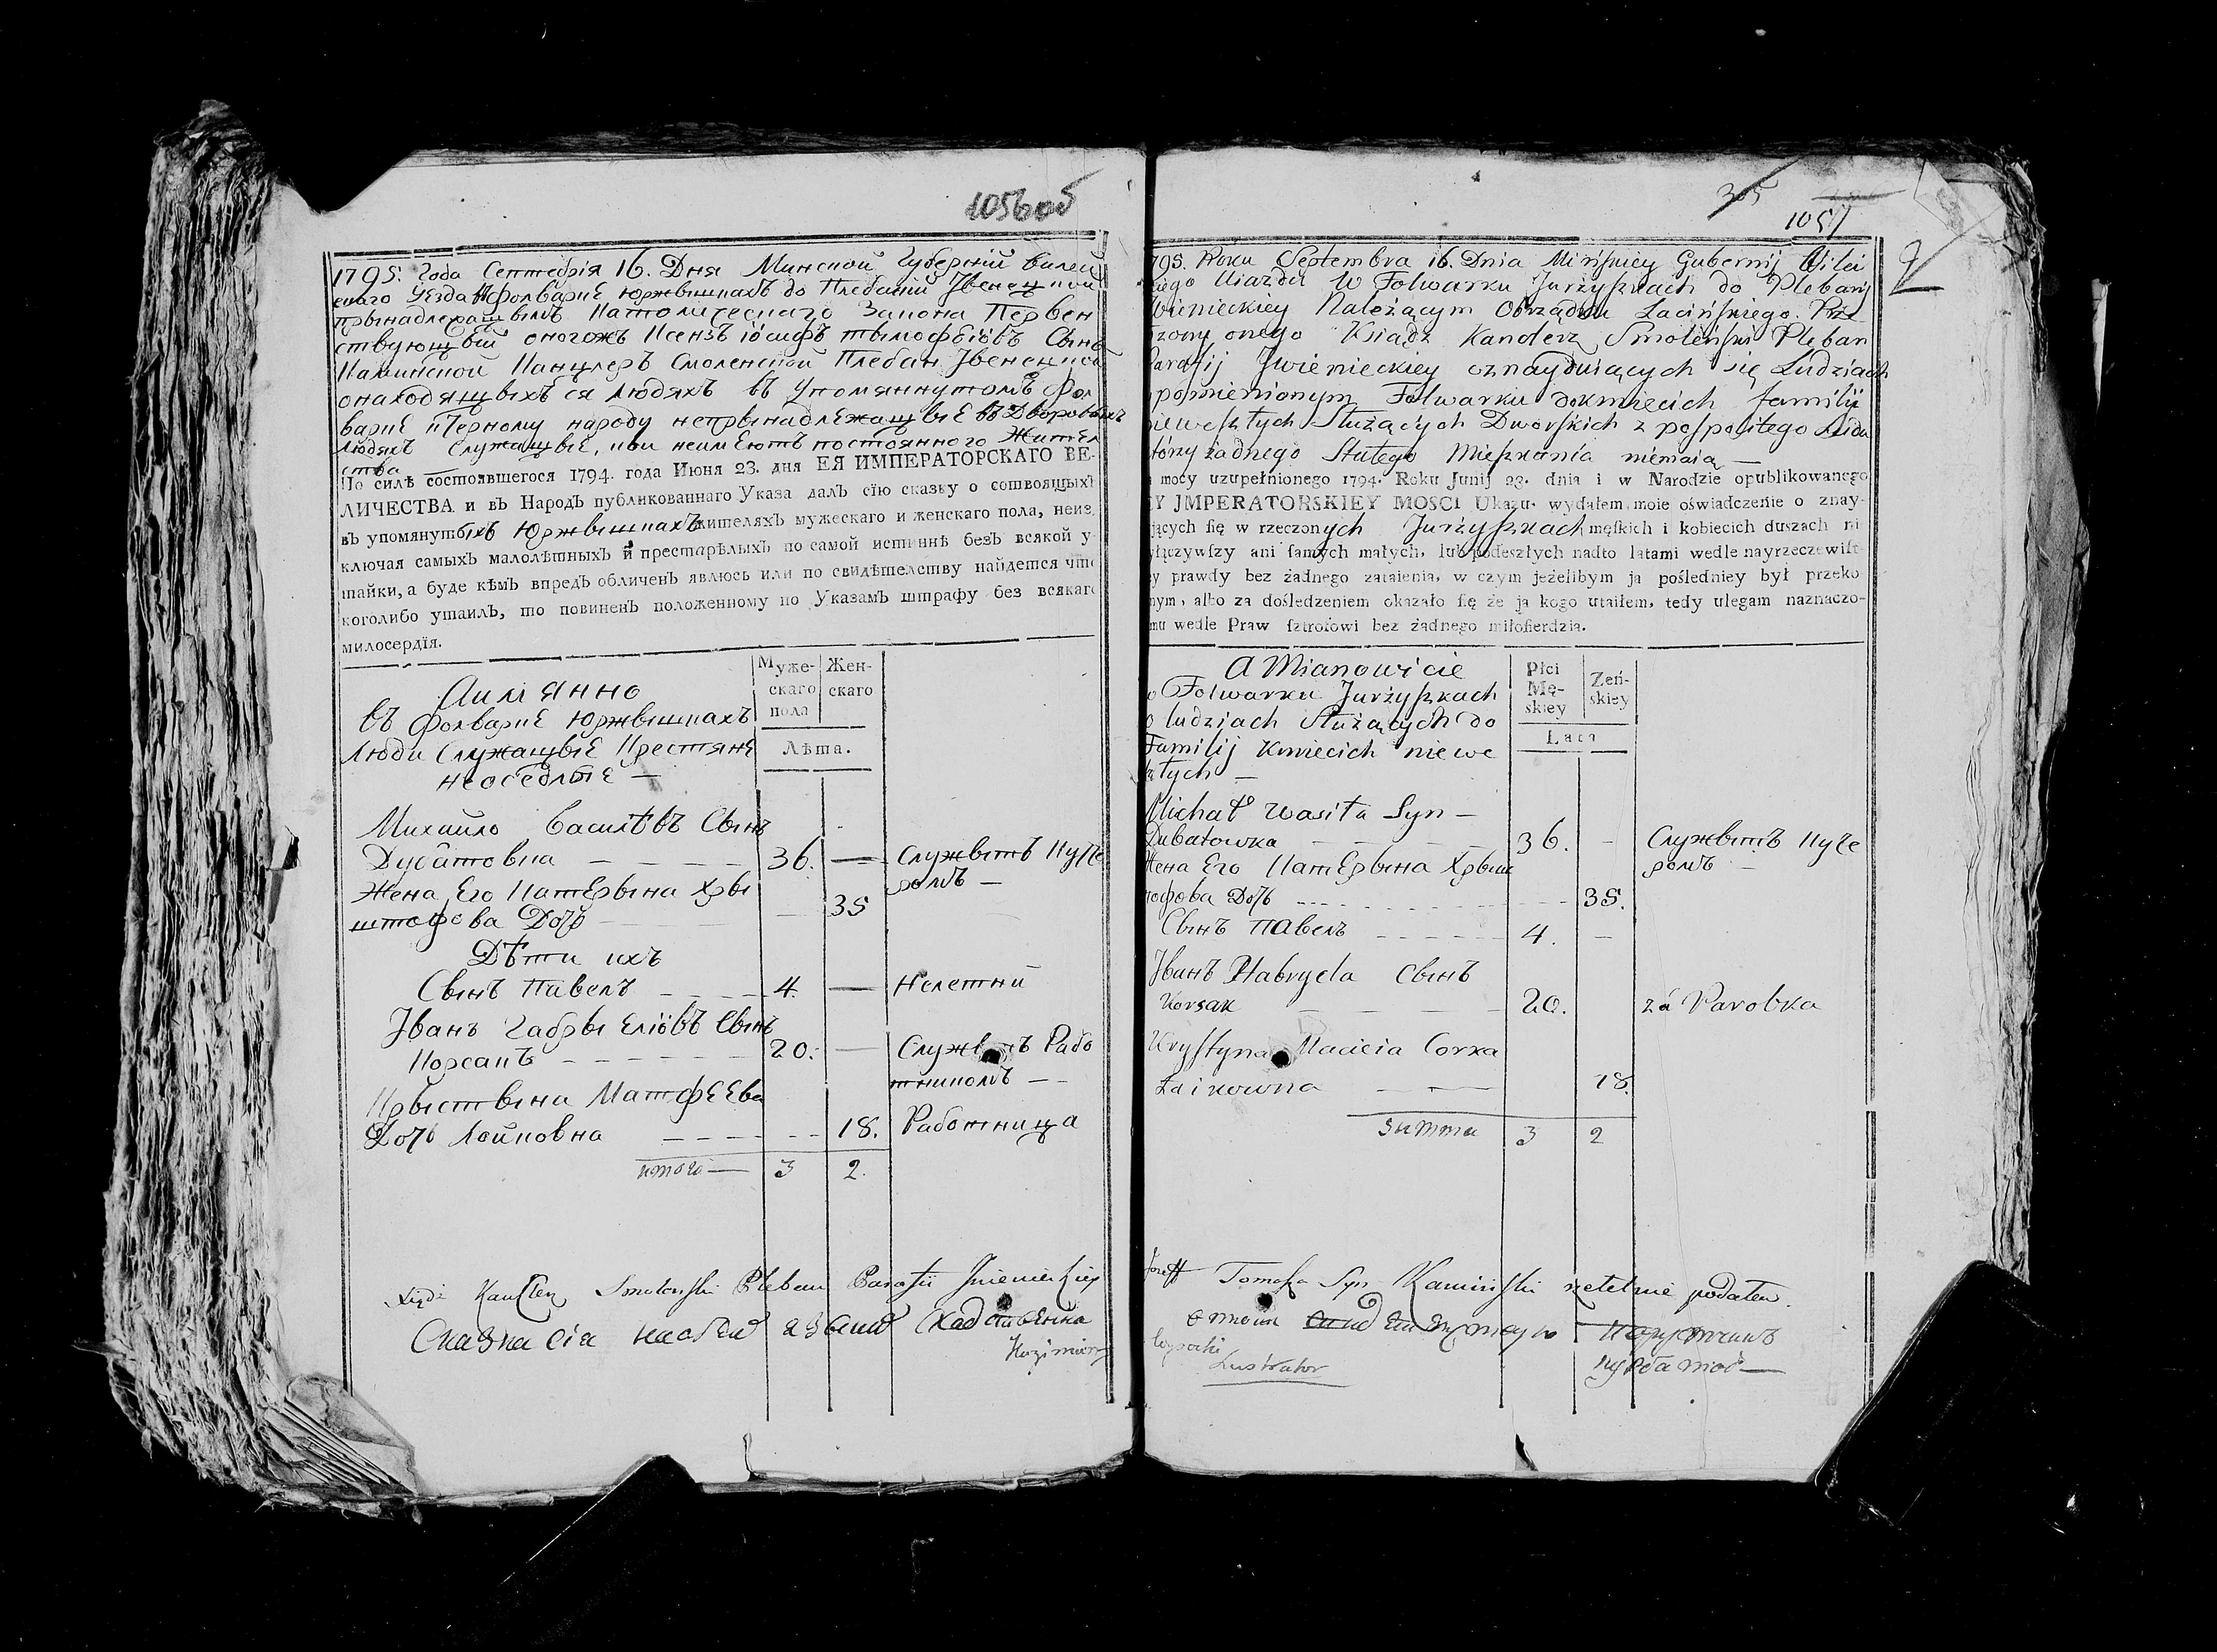 1056 об
1795. Года Септебрія 16. Дня Минской Губерній Вилей
скаго Уезда В фолварке Юржышкахъ до Плебаній Ивенецкой
прынадлежащымъ Католическаго Закона Первен
ствующый оногожъ Ксенз Іосифъ тымофеіовъ Сынъ
Каминской Канцлеръ Смоленской Плебан Ивенецкой
онаходящыхъ ся Людяхъ въ Упомяннутомъ фол
варке Черному народу непрынадлежащые въ Дворовыхъ
Людяхъ Служащые, кои неимеютъ постоянного Жител
ства
По силѣ состоявшегося 1794. года Июня 23. дня ЕЯ ИМПЕРАТОРСКАГО ВЕ-
ЛИЧЕСТВА и въ Народъ публикованнаго Указа далъ сїю сказку о сотвоящыхъ
въ упомянутыхъ Юржышкахъ жителяхъ мужескаго и женскаго пола, неиз
ключая самыхъ малолѣтныхъ и престарѣлыхъ по самой истиннѣ безъ всякой у
тайки, а буде кѣмъ впредь обличенъ явлюсь или по свидѣтелству найдется что
коголибо утаилъ, то повиненъ положенному по Указамъ штрафу без всякаго
милосердїя.
Муже-скаго пола Жен-скаго
Лѣта.
Аимянно
въ Фолварке Юржышкахъ
Люди Служащые Крестяне
неоседлые —
Михайло Василѣвъ Сынъ
Дубатовка — 36. — Служытъ Куче
ромъ —
Жена Его Катерына Хры
штофова Дочь — 35
Дѣти ихъ
Сынъ Павелъ — 4. — Нелетний
Іванъ Габрыеліовъ Сынъ
Корсакъ — 20. — Служытъ Рабо
тникомъ —
Крыстына Матфеева
Дочь Лойковна — 18. Работница
итого — 3 2.
Smolenski Pleban Parafii
Сказка сія
Kazimierz
305
1057
795. Roku Septembra 16. Dnia Mińskiey Gubernij Wilei
skiego Uiazdu W Folwarku Jurżyszkach do Plebanij
Iwienieckiey Należącym Obrządku Łacińskiego. Prze
łożony onego Ksiądz Kanclerz Smoleński Pleban
Parafij Jwienieckiey oznayduiących się Ludziach
pomienionym Folwarku dokmiecich familij
nieweszłych Służących Dworskich z pospolitego Ludu
którzy żadnego Stałego Mieszkania niemaią —
mocy uzupełnionego 1794. Roku Junij 23. dnia i w Narodzie opublikowanego
Y JMPERATORSKIEY MOSCI Ukazu. wydałem moie oświadczeńie o znay-
jących się w rzeczonych Jurżyszkach męſkich i kobiecich duszach ni
yłączywſzy ani ſamych małych, lub podeszłych nadto latami wedle nayrzeczewiſt
ey prawdy bez żadnego zataienia, w czym jeżelibym ja poślednieу był przeko
nym, albo za dośledzeniem okazało się że ja kogo utaiłem, tedy ulegam naznaczo-
mu wedle Praw ſztrofowi bez żadnego miłoſierdzia.
Płci Mę-skiey Żeń-skiey
Lata
A Mianowicie
w Folwarku Jurżyszkach
o ludziach Służących do
Familij Kmiecich niewe
szłych —
Michał Wasila Syn —
Dubatowka — 36. — Служытъ Куче
ромъ —
Жена Его Катерына Хрыш
тофова Дочь — 35.
Сынъ Павелъ — 4. —
Іванъ Habryela Сынъ
Korsak — 20. za Parobka
Krystyna Macieia Corka
Łaikowna — 18.
Summa 3 2
Jozeff Tomasza Syn Kamiński rzetelnie podałem.
Lustrator